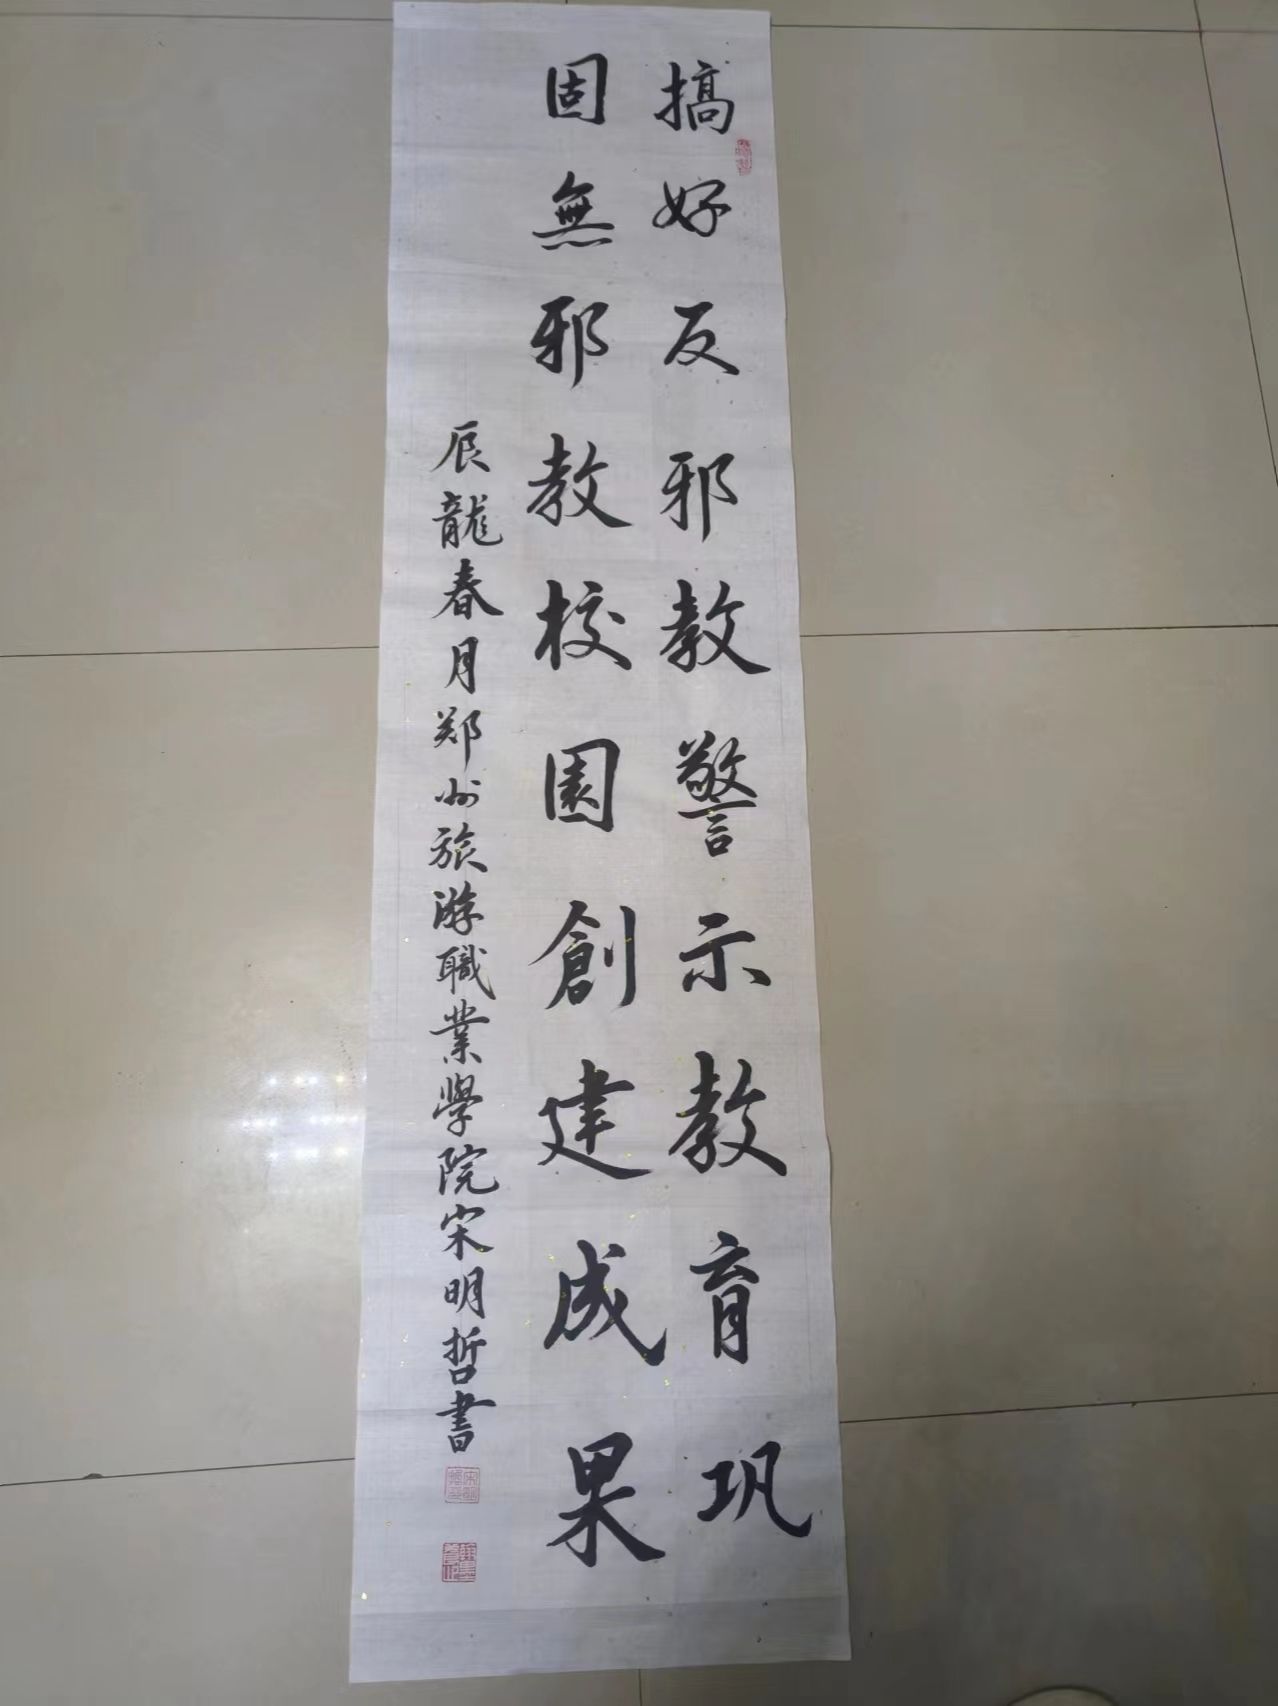 搞好反邪教警示教育巩
固無邪教校園創建成果
辰龍春月郑州旅游職業學院宋明哲書